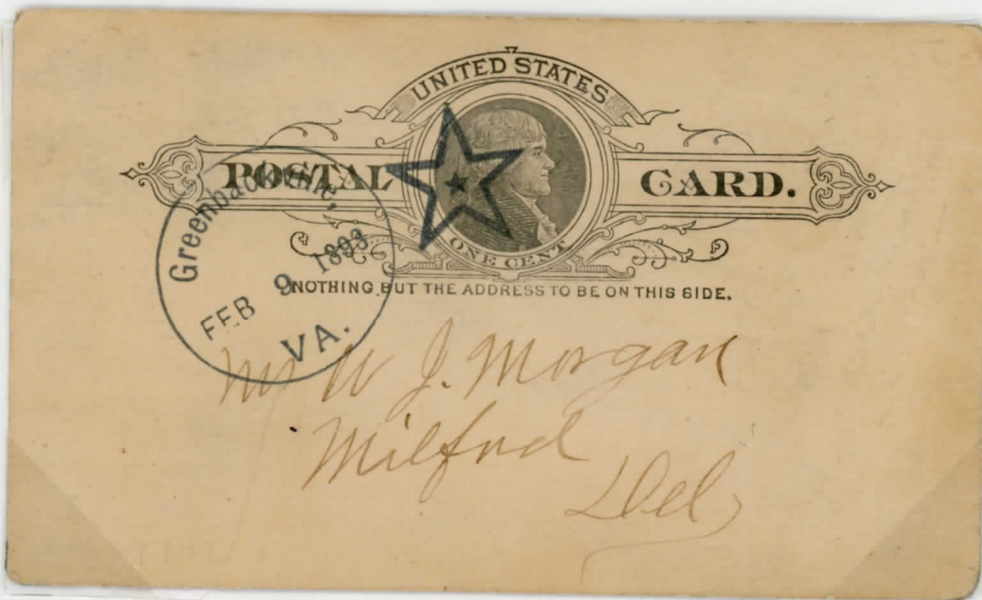 UNITED STATES
POSTAL CARD.
ONE CENT
NOTHING BUT THE ADDRESS TO BE ON THIS SIDE.
Greenbackville,
FEB 9 1893
VA.
W J. Morgan
Milford
Del